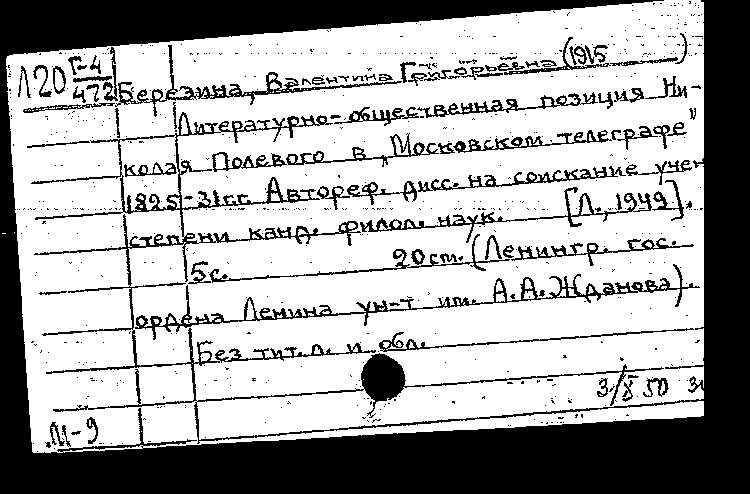 Л20 Г-4
472
Березина, Валентина Григорьевна (1915 )
Литературно-общественная позиция Ни-
колая Полевого в „Московском телеграфе"
1825-31гг. Автореф. дисс. на соискание учен
степени канд. филол. наук. [Л., 1949].
5с. 20см. (Ленингр. гос.
ордена Ленина ун-т им. А.А.Жданова).
Без тит.л. и обл.
3/X 50
М-9